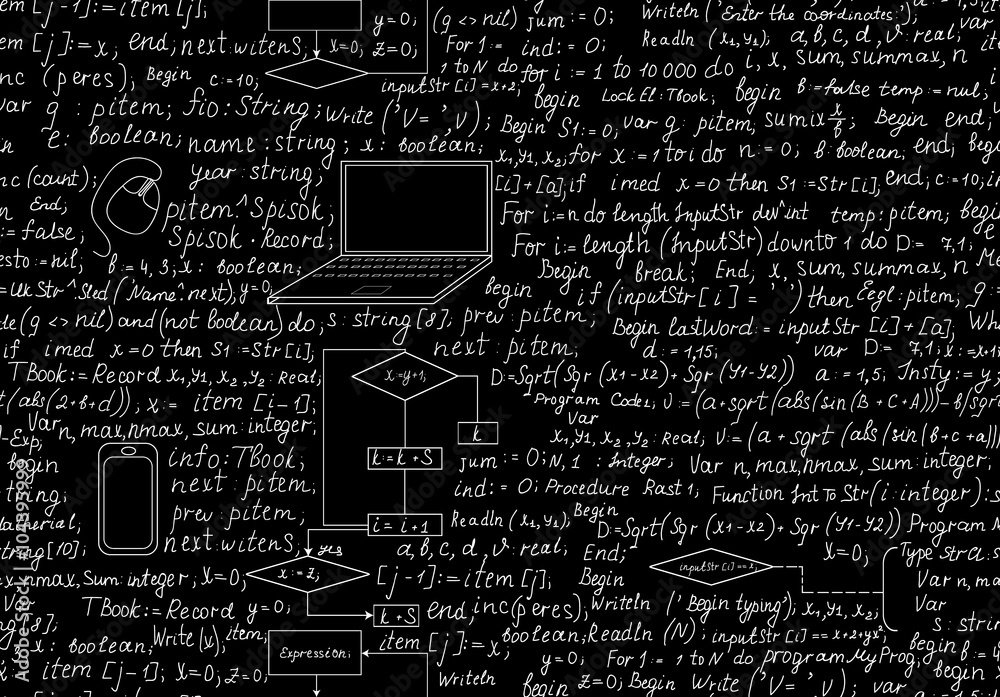 em [j-1]:=item [j];
y=0;
(g <> nil)
jum:=0;
Writeln ('Enter the coordinates:');
var
em [j]:=x; end; next witenS;
x=0;
z=0;
For 1:=
ind:=0;
Readln (x1,y1);
a,b,c,d,v:real;
1 to N do
for i:=1 to 10 000 do
i, x, sum, summax, n
nc (peres);
Begin
c:=10;
inputStr [i]=x+2;
begin
Lock El:TBook;
begin
b:=false
temp:=nul;
var q:pitem; fio:String; Write ('V= ',V);
Begin
S1:=0;
var g:pitem;
sumix
Begin end;
e: boolean; name:string; x:boolean;
x1,y1,x2;
for x:=1 to i do
n=0;
b:boolean; end;
nc (count);
year:string;
[i]+[a];
if imed x=0 then S1:=Str[i];
end; c:=10;
End;
pitem.^Spisok;
For i:=n do length InputStr dev^int
temp:pitem;
:=false;
Spisok.Record;
For i:=length (InputStr) downto 1 do
D=7,1;
esto:=nil;
b=4,3;
x: boolean;
Begin
break;
End;
x, sum, summax, n
=Uk Str^.Sled ('Name^.next);
y=0;
begin
if (inputStr[i]=' ') then
Eegl:pitem;
de (g <> nil) and (not boolean) do;
s:string[8];
prev pitem;
Begin lastWord:=inputStr [i]+[a];
if imed x=0 then S1:=Str[i];
next pitem;
d=1,15;
var
D=7,1;
TBook:=Record x1,y1,x2,y2:Real;
x:=y+1;
D:=Sqrt(Sqr(x1-x2)+Sqr(y1-y2))
a:=1,5;
t(abs(2+b+d));
x:=item [i-1];
Program Code1;
U:=(a+sqrt(abs(sin(B+C+A)))-b/sqrt
Var
n, max, nmax, sum:integer;
k
Var
x1,y1,x2,y2:Real;
U=(a+sqrt(abs(sin(b+c+a)))
-Exp;
begin
info:TBook;
k:=k+S
jum:=0;
N,1 :Integer;
Var n, max, nmax, sum:integer;
next pitem;
ind:=0;
Procedure Rast 1;
Function Int To Str(i:integer):
prev pitem;
i=i+1
Readln (x1,y1);
Begin
tring[10];
next witenS;
yes
a,b,c,d,v:real;
D:=Sqrt(Sqr(x1-x2)+Sqr(y1-y2))
Program
End;
x=0;
x, nmax, Sum:integer;
X=0;
x:=z;
[j-1]:=item [j];
Begin
inputStr [i]==x;
Var n, ma
Var
TBook:=Record
y=0;
k+S
end; inc(peres);
Writeln ('Begin typing');
x1,x2,x2;
Var
g[8];
x: boolean;
Write(x);
item;
Expression;
item [j]:=x;
boolean;
Readln (N);
inputStr [i]==x+2+yx²;
begin
item [j-1];
X=0;
Z=0;
y=0;
For 1:=1 to N do
program MyProg;
begin
Writeln
begin
Z=0;
Begin
Write ('V= ',V);
var
Adobe Stock | #104393999